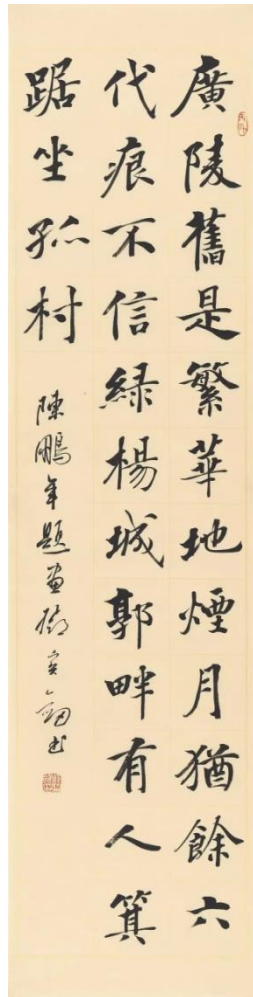 廣陵舊是繁華地煙月猶餘六
代痕不信綠楊城郭畔有人箕
踞坐孤村
陳鵬年題畫